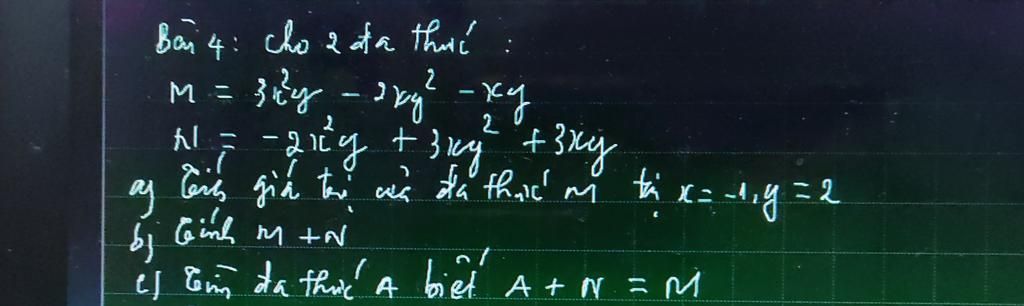 Bài 4: Cho 2 đa thức:
M = 3x²y - 2xy² - xy
N = -2x²y + 3xy² + 3xy
a) Tính giá trị của đa thức M tại x = -1, y = 2
b) Tính M + N
c) Tìm đa thức A biết A + N = M